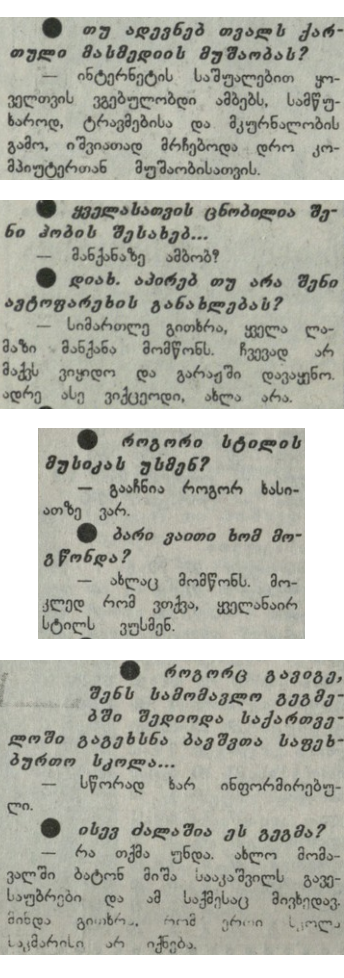 ● თუ ადევნებ თვალს ქარ-
თული მასმედიის მუშაობას?
— ინტერნეტის საშუალებით ყო-
ველთვის ვგებულობდი ამბებს, სამწუ-
ხაროდ, ტრავმებისა და მკურნალობის
გამო, იშვიათად მრჩებოდა დრო კო-
მპიუტერთან მუშაობისათვის.
● ყველასათვის ცნობილია შე-
ნი ჰობის შესახებ...
— მანქანაზე ამბობ?
● დიახ. აპირებ თუ არა შენი
ავტოფარეხის განახლებას?
— სიმართლე გითხრა, ყველა ლა-
მაზი მანქანა მომწონს. ჩვევად არ
მაქვს ვიყიდო და გარაჟში დავაყენო.
ადრე ასე ვიქცეოდი, ახლა არა.
● როგორი სტილის
მუსიკას უსმენ?
— გააჩნია როგორ ხასი-
ათზე ვარ.
● ბარი ვაითი ხომ მო-
გწონდა?
— ახლაც მომწონს. მო-
კლედ რომ ვთქვა, ყველანაირ
სტილს ვუსმენ.
● როგორც გავიგე,
შენს სამომავლო გეგმე-
ბში შედიოდა საქართვე-
ლოში გაგეხსნა ბავშვთა საფეხ-
ბურთო სკოლა...
— სწორად ხარ ინფორმირებუ-
ლი.
● ისევ ძალაშია ეს გეგმა?
— რა თქმა უნდა. ახლო მომა-
ვალში ბატონ მიშა სააკაშვილს გავე-
საუბრები და ამ საქმესაც მივხედავ.
მინდა გითხრა, რომ ერთი სკოლა
საკმარისი არ იქნება.